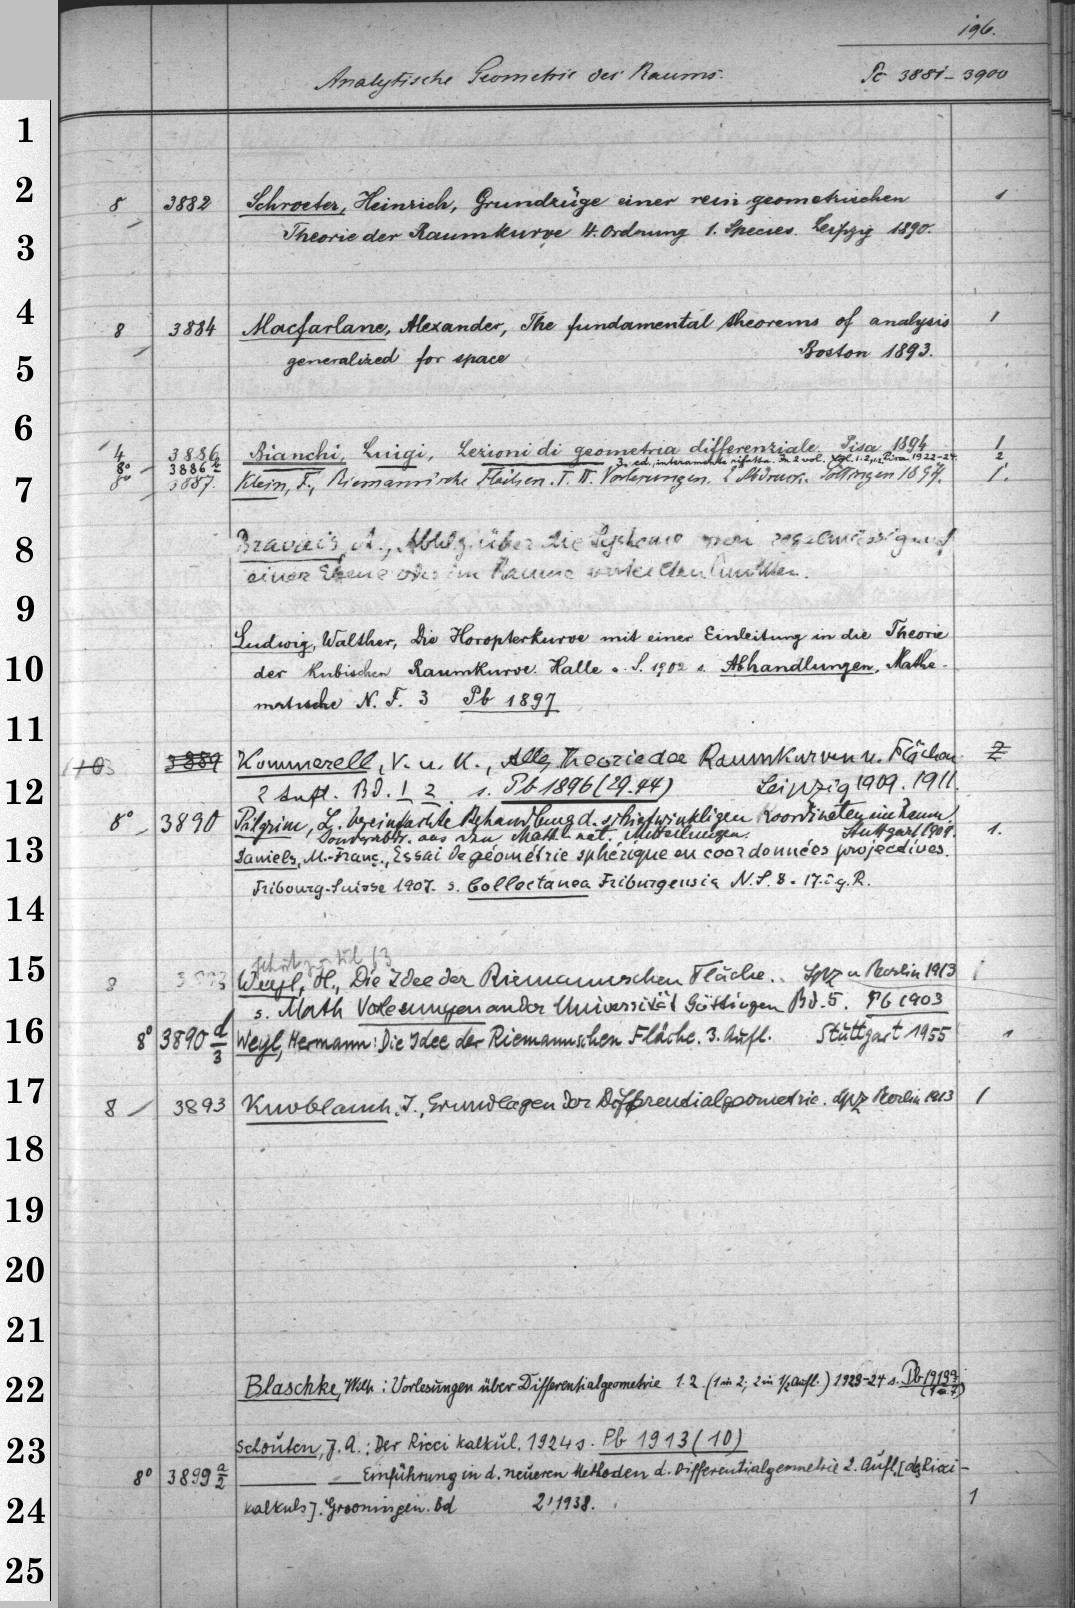 196.
Analytische Geometrie des Raums. Pc 3881-3900
8 3882 Schroeter, Heinrich, Grundzüge einer rein geometrischen 1
Theorie der Raumkurve 4. Ordnung 1. Species. Leipzig 1890.
8 3884 Macfarlane, Alexander, The fundamental theorems of analysis 1
generalized for space Boston 1893.
4 3886 Bianchi, Luigi, Lezioni di geometria differenziale. Pisa 1894 1
8° 3886 2 3. ed. interamente rifatta. In 2 vol. Vol. 1. 2, 1.2 Pisa 1922-24. 2
8° 3887. Klein, F., Riemann'sche Flächen. I. II. Vorlesungen. Göttingen 1897. 1.
Bravais, A., Abhdlg. über die Systeme von regelmässig auf
einer Ebene oder im Raume verteilten Punkten.
Ludwig, Walther, Die Horopterkurve mit einer Einleitung in die Theorie
der kubischen Raumkurve. Halle a. S. 1902 s. Abhandlungen, Mathe-
matische N. F. 3 Pb 1897
3889 Kommerell, V. u. K., Allg. Theorie der Raumkurven u. Flächen 2
2 Aufl. Bd. 1 2. s. Pb 1896 (29.44) Leipzig 1909. 1911.
8° 3890 Pilgrim, L. Vereinfachte Behandlung d. schiefwinkligen Koordinaten im Raum.
Sonderabdr. aus den Math.-nat. Mitteilungen. Stuttgart 1909. 1.
Daniels, M.-Franç., Essai de géométrie sphérique en coordonnées projectives.
Fribourg-Suisse 1907. s. Collectanea Friburgensia N. S. 8. = 17. d. g. R.
8 Weyl, H., Die Idee der Riemannschen Fläche.. Lpz u Berlin 1913 1
s. Math Vorlesungen an der Universität Göttingen Bd. 5. Pb 1903
8° 3890 d/3 Weyl, Hermann: Die Idee der Riemannschen Fläche. 3. Aufl. Stuttgart 1955 1
8 3893 Knoblauch, J., Grundlagen der Differentialgeometrie. Lpz Berlin 1913 1
Blaschke, Wilh: Vorlesungen über Differentialgeometrie 1. 2 (1 in 2; 2 in 1/2 Aufl.) 1923-24 s. Pb 1919
Schouten, J. A.: Der Ricci kalkül. 1924 s. Pb 1913 (10)
8° 3899 a/2 — Einführung in d. neueren Methoden d. Differentialgeometrie 2. Aufl. [des Ricci-
kalkuls]. Groningen. Bd 2, 1938. 1
1
2
3
4
5
6
7
8
9
10
11
12
13
14
15
16
17
18
19
20
21
22
23
24
25